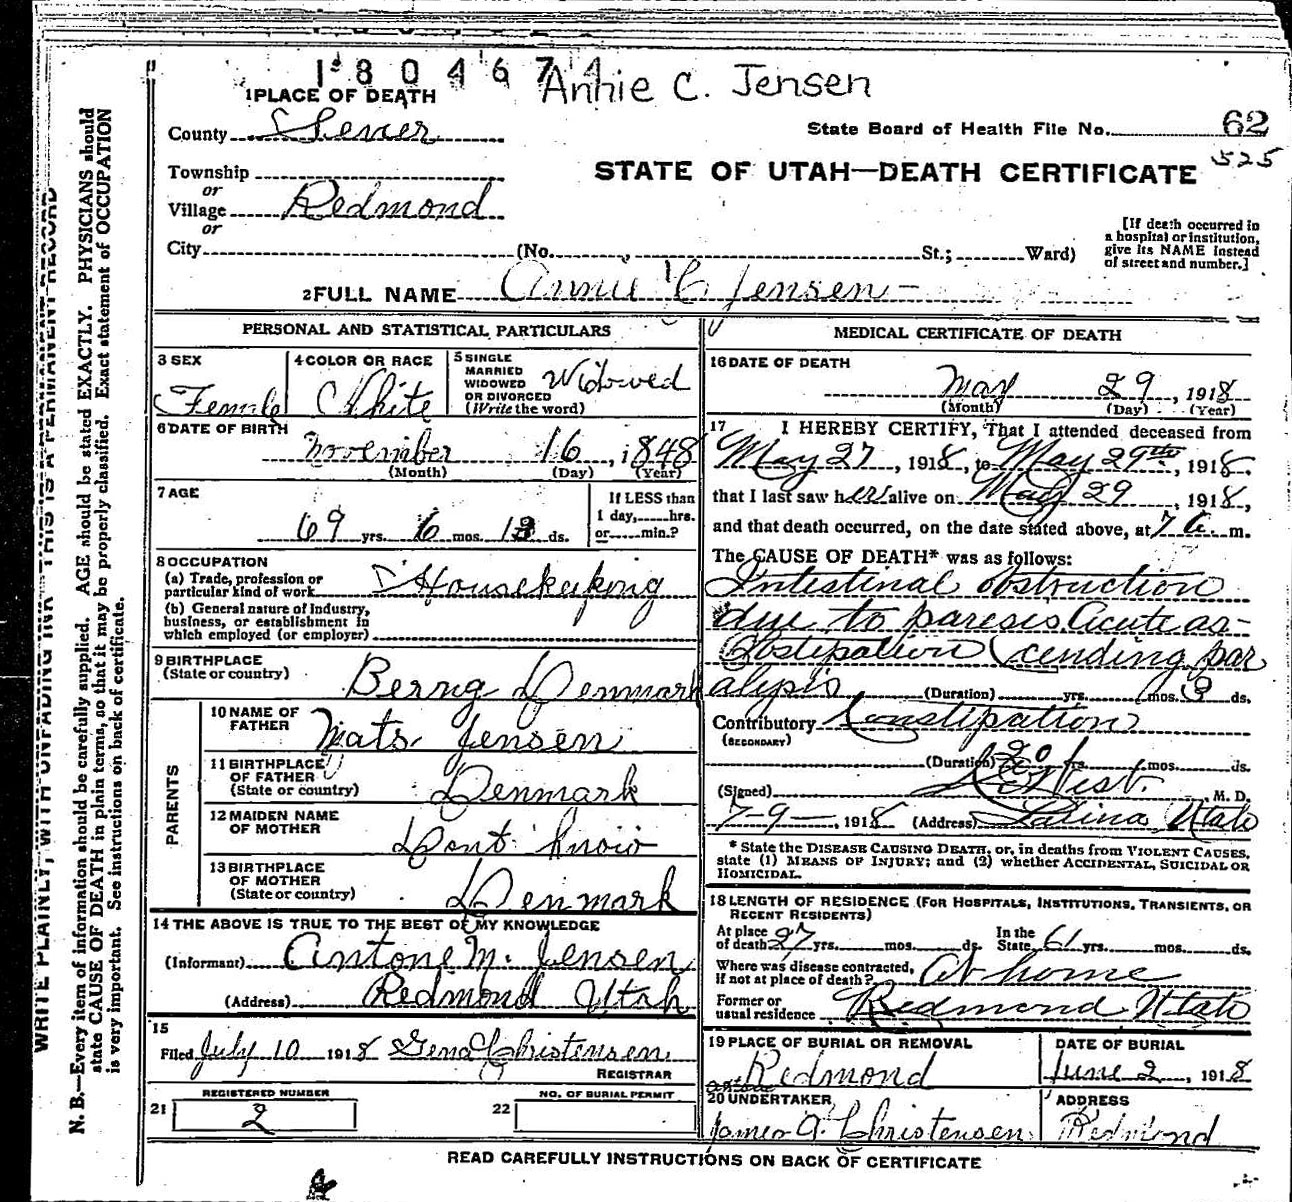 1804674
Annie C. Jensen
1 PLACE OF DEATH
County Sevier
State Board of Health File No. 62
525
STATE OF UTAH—DEATH CERTIFICATE
Township
or
Village Redmond
or
City (No. St.; Ward)
[If death occurred in
a hospital or institution,
give its NAME instead
of street and number.]
2 FULL NAME Annie C Jensen
PERSONAL AND STATISTICAL PARTICULARS
3 SEX
Female
4 COLOR OR RACE
White
5 SINGLE
MARRIED
WIDOWED
OR DIVORCED
(Write the word)
Widowed
6 DATE OF BIRTH
November 16, 1848
(Month) (Day) (Year)
7 AGE
69 yrs. 6 mos. 13 ds.
If LESS than
1 day, hrs.
or min.?
8 OCCUPATION
(a) Trade, profession or
particular kind of work Housekeeping
(b) General nature of Industry,
business, or establishment in
which employed (or employer)
9 BIRTHPLACE
(State or country)
Denmark
PARENTS
10 NAME OF
FATHER Mats Jensen
11 BIRTHPLACE
OF FATHER
(State or country) Denmark
12 MAIDEN NAME
OF MOTHER Dont know
13 BIRTHPLACE
OF MOTHER
(State or country) Denmark
14 THE ABOVE IS TRUE TO THE BEST OF MY KNOWLEDGE
(Informant) Antone M. Jensen
(Address) Redmond Utah
15
Filed July 10 1918 Gena Christensen
REGISTRAR
REGISTERED NUMBER
21 2
NO. OF BURIAL PERMIT
22
MEDICAL CERTIFICATE OF DEATH
16 DATE OF DEATH
May 29, 1918
(Month) (Day) (Year)
17 I HEREBY CERTIFY, That I attended deceased from
May 27, 1918, to May 29th, 1918.
that I last saw her alive on May 29, 1918,
and that death occurred, on the date stated above, at 7 m.
The CAUSE OF DEATH* was as follows:
Intestinal obstruction
due to paresis. Acute as-
Obstipation (cending par
alysis (Duration) yrs. mos. 3 ds.
Contributory Constipation
(SECONDARY)
(Duration) 20 yrs. mos. ds.
(Signed) West. M. D.
7-9-, 1918 (Address) Salina, Utah
* State the DISEASE CAUSING DEATH, or, in deaths from VIOLENT CAUSES,
state (1) MEANS OF INJURY; and (2) whether ACCIDENTAL, SUICIDAL or
HOMICIDAL.
18 LENGTH OF RESIDENCE (FOR HOSPITALS, INSTITUTIONS, TRANSIENTS, OR
RECENT RESIDENTS)
At place
of death 27 yrs. mos. ds. In the
State 61 yrs. mos. ds.
Where was disease contracted,
if not at place of death? At home
Former or
usual residence Redmond Utah
19 PLACE OF BURIAL OR REMOVAL
Redmond
DATE OF BURIAL
June 2, 1918
20 UNDERTAKER
James A. Christensen
ADDRESS
Redmond
READ CAREFULLY INSTRUCTIONS ON BACK OF CERTIFICATE
WRITE PLAINLY, WITH UNFADING INK—THIS IS A PERMANENT RECORD
N. B.—Every item of information should be carefully supplied. AGE should be stated EXACTLY. PHYSICIANS should
state CAUSE OF DEATH in plain terms, so that it may be properly classified. Exact statement of OCCUPATION
is very important. See instructions on back of certificate.